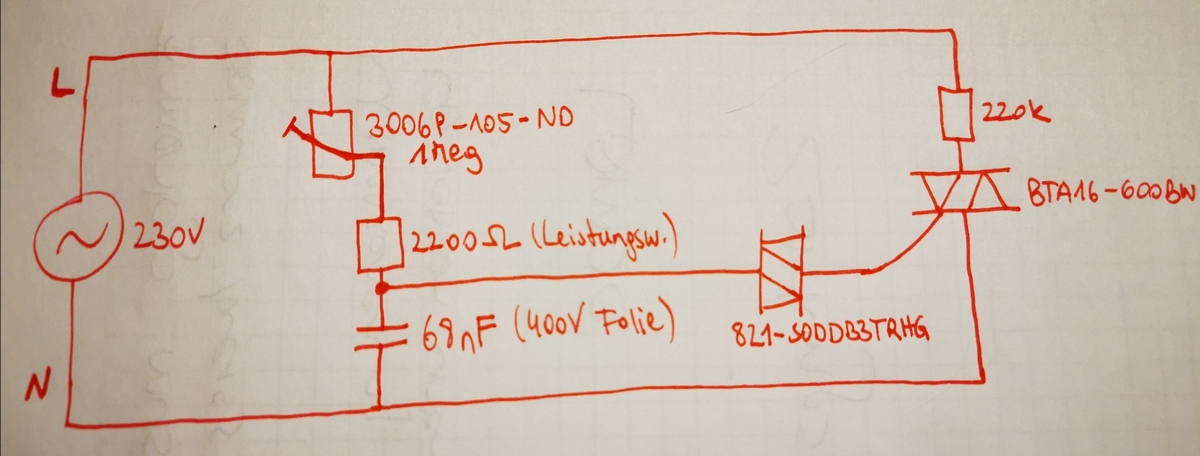 L
3006P-105-ND
1Meg
220k
BTA16-600BW
230V
2200Ω (Leistungsw.)
68nF (400V Folie)
821-SODDB3TRHG
N